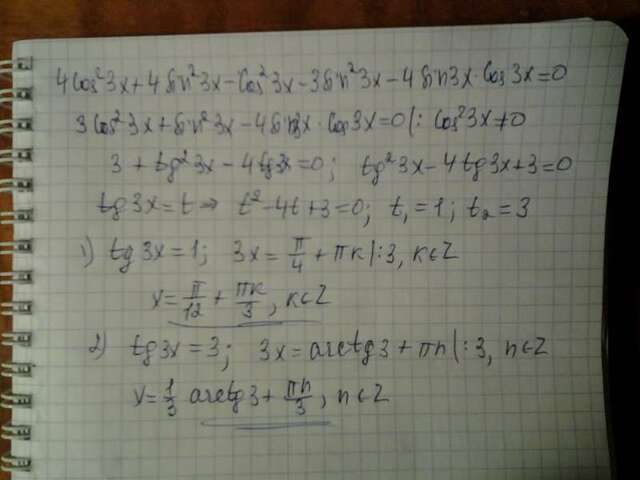 4cos²3x+4sin²3x-cos²3x-3sin²3x-4sin3x·cos3x=0
3cos²3x+sin²3x-4sin3x·cos3x=0|:cos²3x≠0
3+tg²3x-4tg3x=0; tg²3x-4tg3x+3=0
tg3x=t⇒ t²-4t+3=0; t₁=1; t₂=3
1) tg3x=1; 3x=π/4+πk|:3, k∈Z
x=π/12+πk/3, k∈Z
2) tg3x=3; 3x=arctg3+πn|:3, n∈Z
x=1/3 arctg3+πn/3, n∈Z